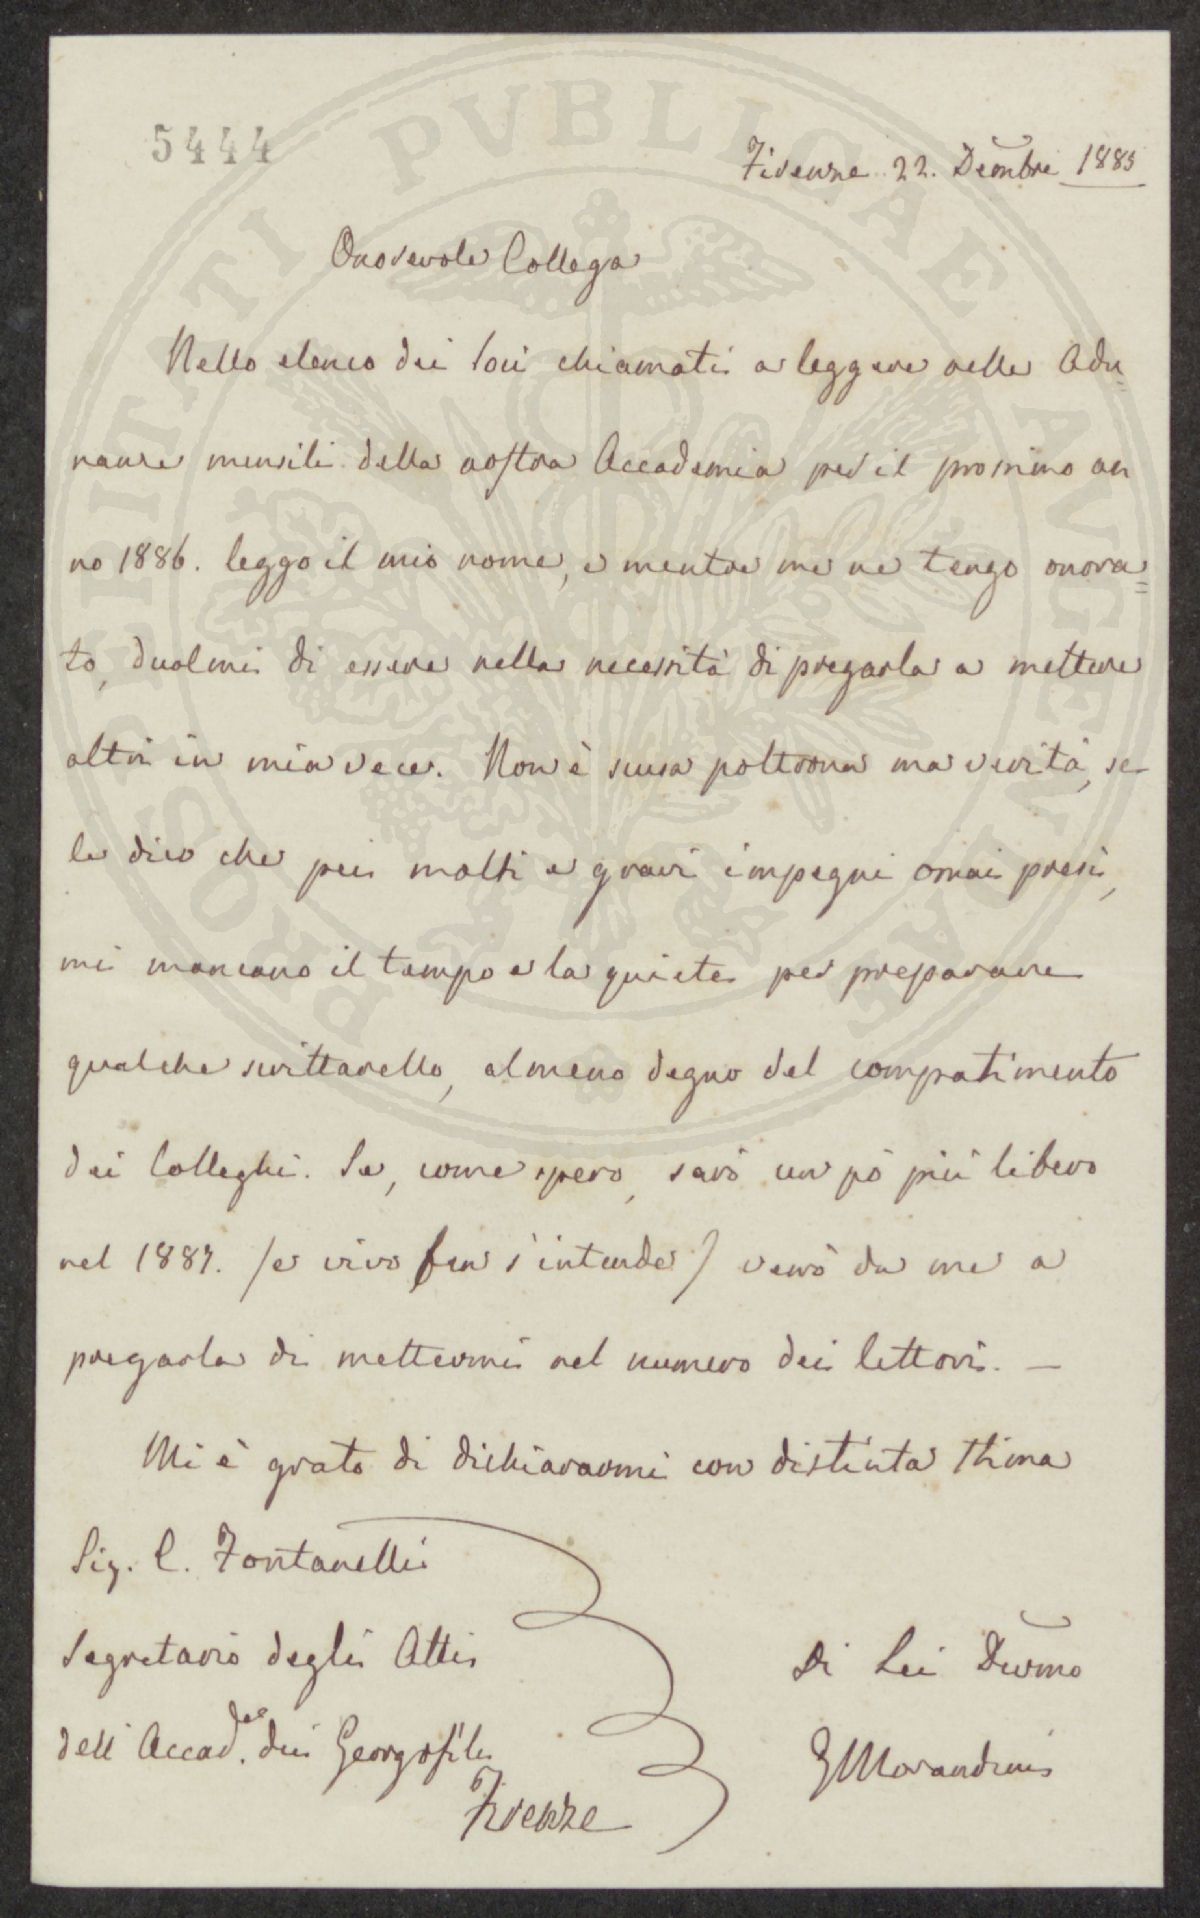 PROSPERITATI PUBLICAE AUGENDAE
5444
Firenze 22. Dembre 1885
Onorevole Collega
Nello elenco dei Soci chiamati a leggere nelle Adu=
nanze mensili della nostra Accademia per il prossimo an
no 1886. leggo il mio nome, e mentre me ne tengo onora=
to, duolmi di essere nella necessità di pregarla a mettere
altri in mia vece. Non è scusa poltrona ma verità, se
le dico che pei molti e gravi impegni omai presi,
mi mancano il tempo e la quiete per preparare
qualche scrittarello, almeno degno del compatimento
dei Colleghi. Se, come spero, sarò un pò più libero
nel 1887. (e vivo ben s'intende) verrò da me a
pregarla di mettermi nel numero dei lettori. —
Mi è grato di dichiararmi con distinta stima
Sig. C. Fontanelli
Segretario degli Atti
dell Accad. dei Georgofili
Firenze
Di Lei Devmo
Morandini